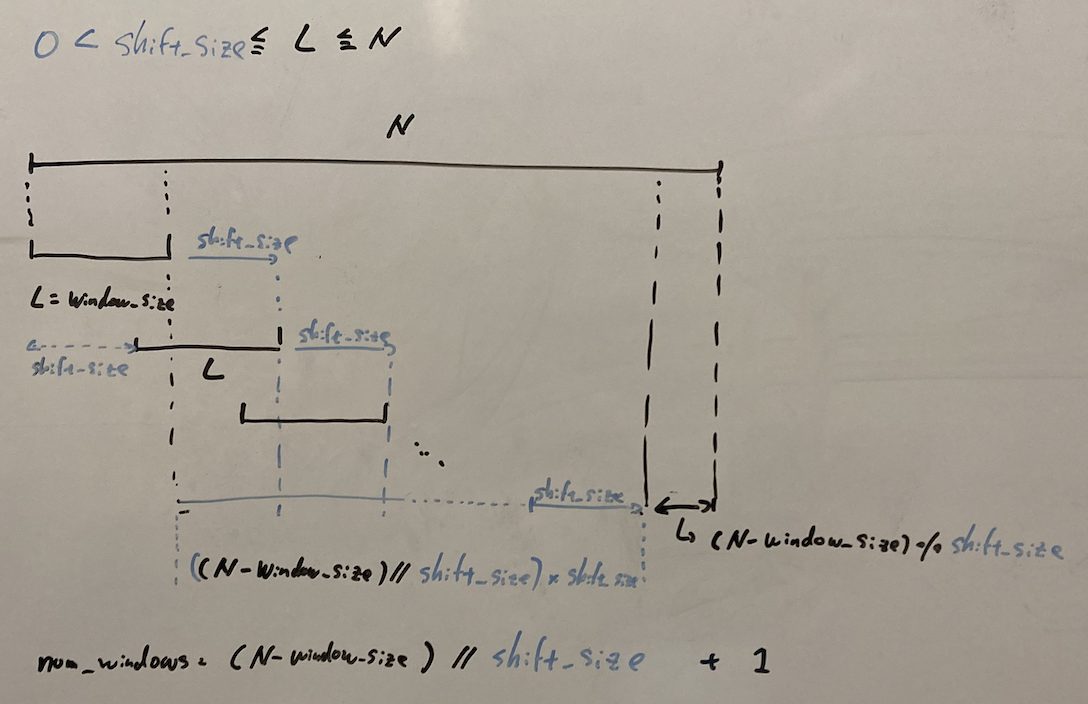 0 < shift_size ≤ L ≤ N
N
shift_size
L = window_size
shift_size
shift-size
L
shift_size
↳ (N-window_size) % shift_size
((N-window_size) // shift_size) × shift_size
num_windows = (N-window-size) // shift_size + 1